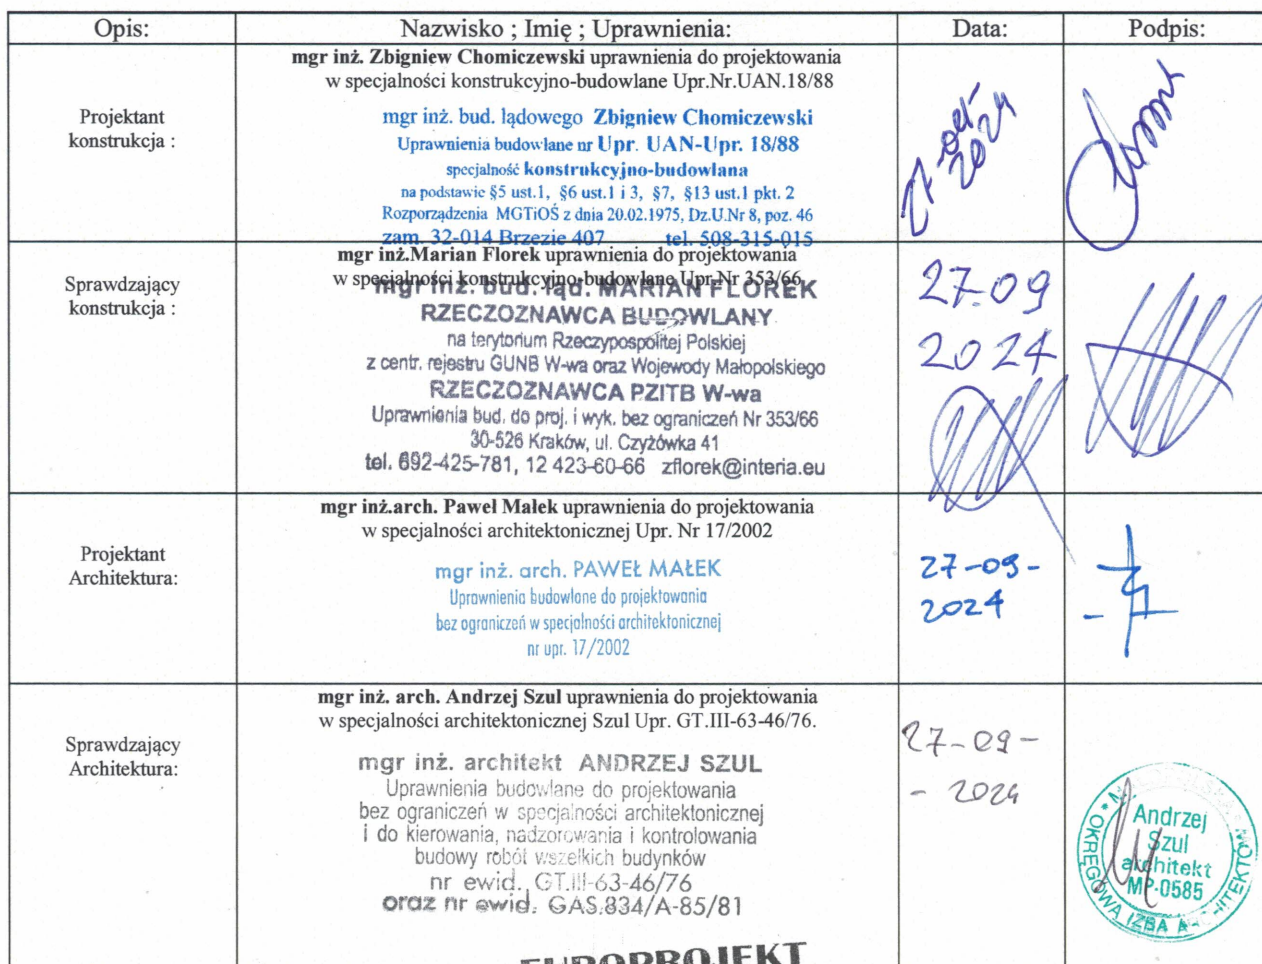 Opis:
Nazwisko ; Imię ; Uprawnienia:
Data:
Podpis:
Projektant
konstrukcja :
mgr inż. Zbigniew Chomiczewski uprawnienia do projektowania
w specjalności konstrukcyjno-budowlane Upr.Nr.UAN.18/88
mgr inż. bud. lądowego Zbigniew Chomiczewski
Uprawnienia budowlane nr Upr. UAN-Upr. 18/88
specjalność konstrukcyjno-budowlana
na podstawie §5 ust.1, §6 ust.1 i 3, §7, §13 ust.1 pkt. 2
Rozporządzenia MGTiOŚ z dnia 20.02.1975, Dz.U.Nr 8, poz. 46
zam. 32-014 Brzezie 407 tel. 508-315-015
2024
Sprawdzający
konstrukcja :
mgr inż.Marian Florek uprawnienia do projektowania
w specjalności konstrukcyjno-budowlane Upr.Nr 353/66
mgr inż. bud. ląd. MARIAN FLOREK
RZECZOZNAWCA BUDOWLANY
na terytorium Rzeczypospolitej Polskiej
z centr. rejestru GUNB W-wa oraz Wojewody Małopolskiego
RZECZOZNAWCA PZITB W-wa
Uprawnienia bud. do proj. i wyk. bez ograniczeń Nr 353/66
30-526 Kraków, ul. Czyżówka 41
tel. 692-425-781, 12 423-60-66 zflorek@interia.eu
27.09
2024
Projektant
Architektura:
mgr inż.arch. Paweł Małek uprawnienia do projektowania
w specjalności architektonicznej Upr. Nr 17/2002
mgr inż. arch. PAWEŁ MAŁEK
Uprawnienia budowlane do projektowania
bez ograniczeń w specjalności architektonicznej
nr upr. 17/2002
27-09-
2024
Sprawdzający
Architektura:
mgr inż. arch. Andrzej Szul uprawnienia do projektowania
w specjalności architektonicznej Szul Upr. GT.III-63-46/76.
mgr inż. architekt ANDRZEJ SZUL
Uprawnienia budowlane do projektowania
bez ograniczeń w specjalności architektonicznej
i do kierowania, nadzorowania i kontrolowania
budowy robót wszelkich budynków
nr ewid. GT.III-63-46/76
oraz nr ewid. GAS.834/A-85/81
27-09-
- 2024
OKRĘGOWA IZBA
Andrzej
Szul
architekt
MP-0585
EUROPROJEKT